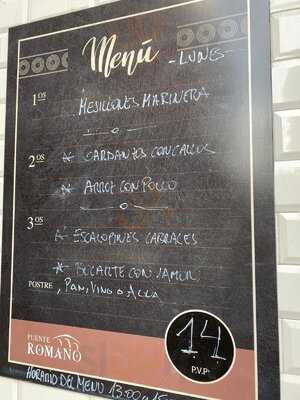 Menú
- LUNES -
1OS
MEJILLONES MARINERA
2OS
GARBANZOS CON CALLOS
ARROZ CON POLLO
3OS
ESCALOPINES CABRALES
BOCARTE CON JAMON
POSTRE , PAN, VINO O AGUA
14
P.V.P.
PUENTE
ROMANO
HORARIO DEL MENU 13:00